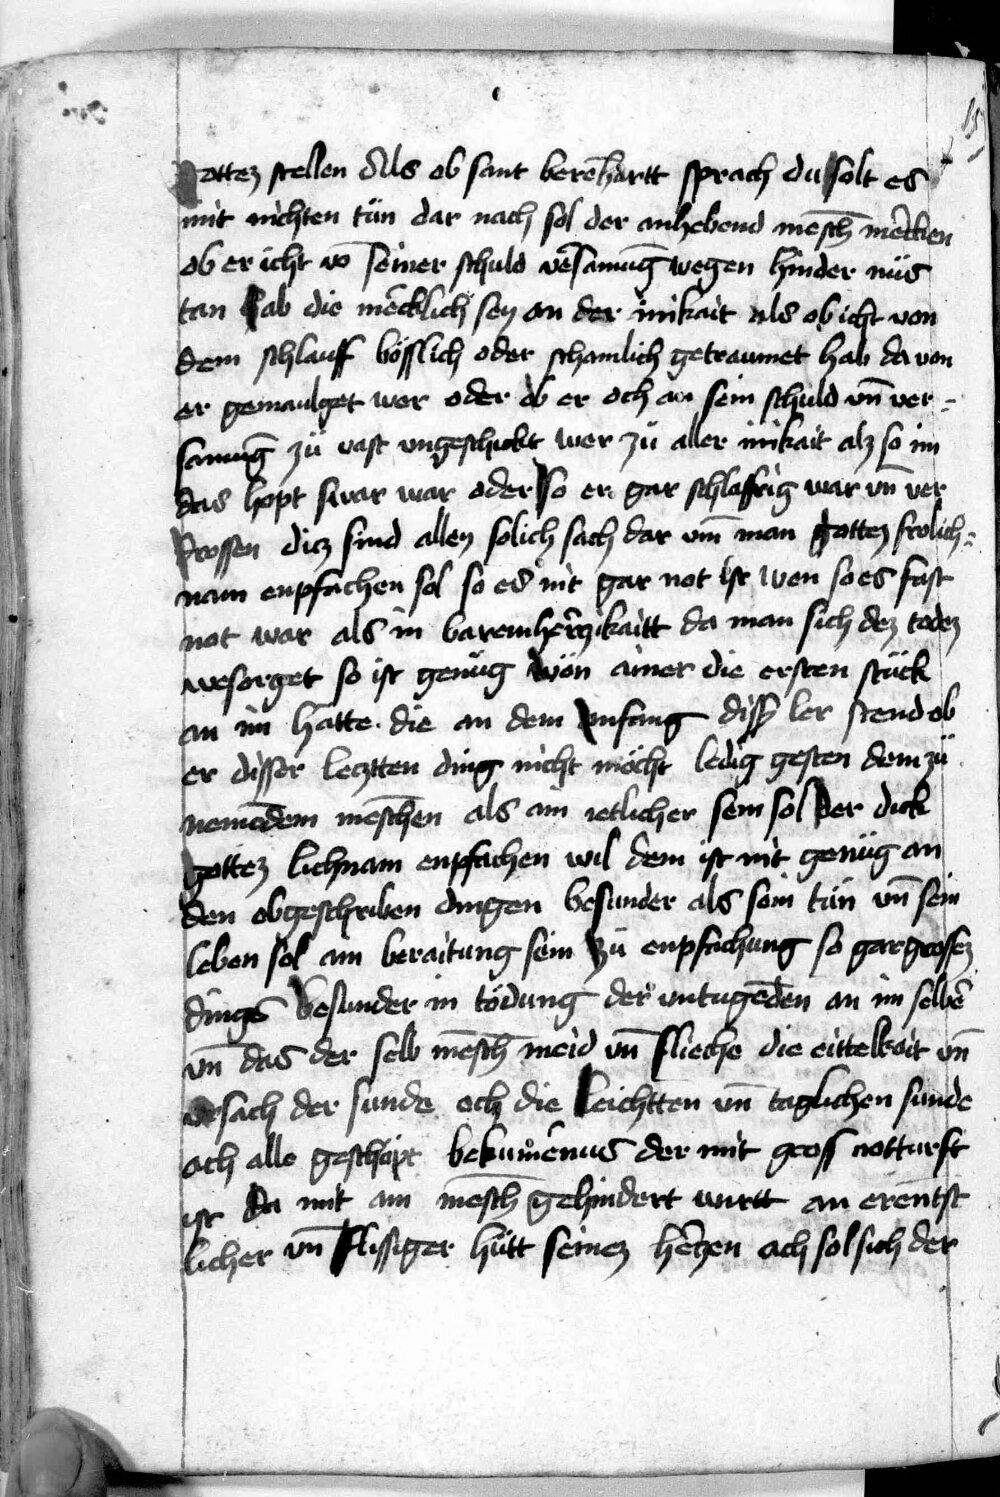 gottez stellen Als ob sant berēhartt sprach du solt es
mit nichten tün dar nach sol der anhebend mēsch mērcken
ob er icht vō seiner schuld vēsamūg wegen hinder nüs
tan hab die mērcklich sey an der inikait als ob icht von
dem schlauff bösslich oder schamlich getraumet hab da von
er gemaulget wer oder ob er och an sein schuld vn̄ ver=
samūg zü vast vngeschickt wer zü aller inikait alz so im
das hopt swar war oder so er gar schlaffrig war vn̄ ver
drossen dicz sind allez solich sach dar vm̄ man gottez frolich=
nam enpfachen sol so es nit gar not ist wen so es fast
not war als in baremhērczikaitt da man sich dez todez
wesorget so ist genüg wön ainer die ersten stück
an im hatte die an dem anfang diss ler stend ob
er disser lectzten ding nicht möcht ledig gesten dem zü
nemēdem meschēn als ain ietlicher sein sol der dick
gottez lichnam enpfachen wil dem ist nit genüg an
den obgeschriben dingen besunder als sein tün vn̄ sein
leben sol ain beraitung sein zü enpfachung so gar grossez
dings besunder in tödung der vntugēden an im selbē
vn̄ das der selb mēsch meid vn̄ flieche die eittelkait vn̄
vrsach der sunde och die leichtten vn̄ taglichen sunde
och alle geschöpt bekum̄ēnus der mit gross notturft
ist da mit ain mēsch gehindert wurtt an erentst
licher vn̄ flissiger hütt seinez hērtzen och sol sich der